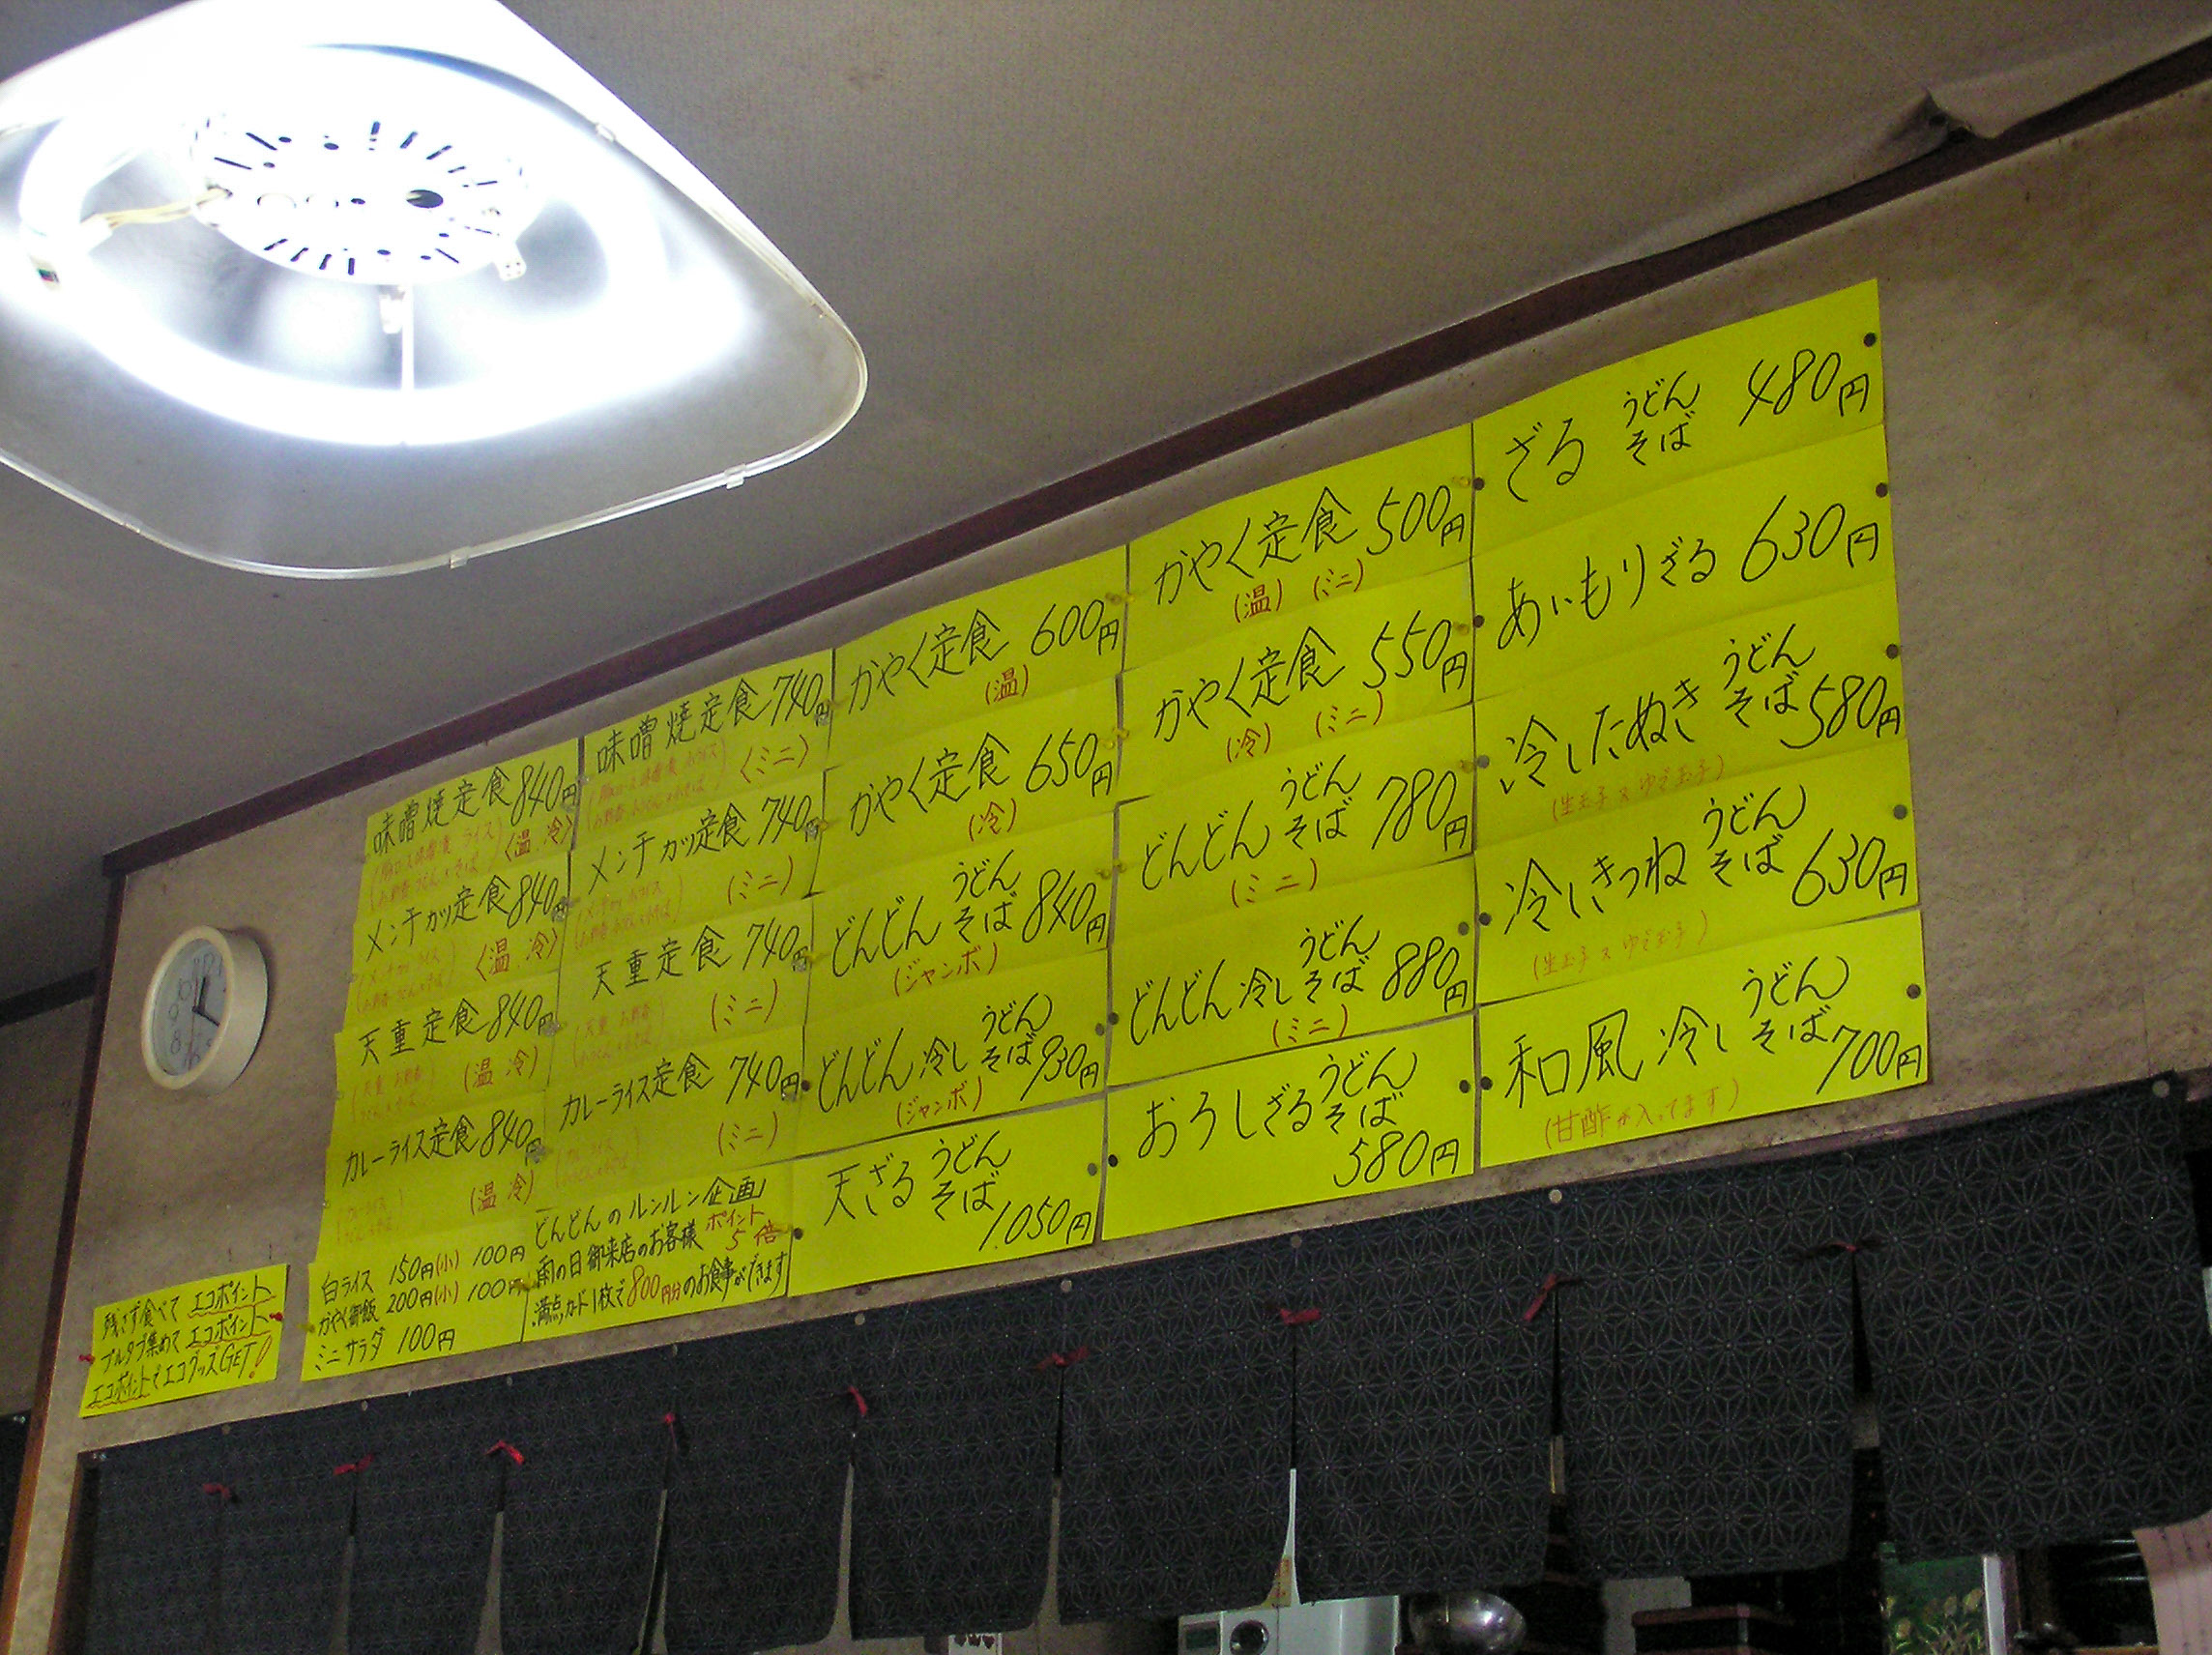 ざる うどん そば 480円
あいもりざる 630円
冷したぬき うどん そば 580円
(生玉子 × ゆで玉子)
冷しきつね うどん そば 630円
(生玉子 × ゆで玉子)
和風冷し うどん そば 700円
(甘酢が入ってます)
かやく定食 500円
(温) (ミニ)
かやく定食 550円
(冷) (ミニ)
どんどん うどん そば 780円
(ミニ)
どんどん冷し うどん そば 880円
(ミニ)
おろしざる うどん そば
580円
かやく定食 600円
(温)
かやく定食 650円
(冷)
どんどん うどん そば 840円
(ジャンボ)
どんどん冷し うどん そば 930円
(ジャンボ)
天ざる うどん そば
1.050円
味噌焼定食 740円
〈ミニ〉
メンチカツ定食 740円
(ミニ)
天重定食 740円
(ミニ)
カレーライス定食 740円
(ミニ)
どんどんのルンルン企画」
雨の日御来店のお客様 ポイント 5倍
満点カード1枚で800円分のお食事ができます
味噌焼定食 840円
〈温 冷〉
メンチカツ定食 840円
〈温 冷〉
天重定食 840円
(温 冷)
カレーライス定食 840円
(温 冷)
白ライス 150円(小) 100円
かやく御飯 200円(小) 100円
ミニサラダ 100円
残さず食べて エコポイント
プルタブ集めて エコポイント
エコポイントでエコグッズGET!